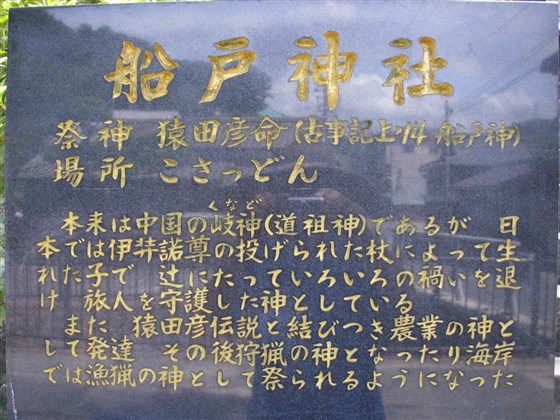 船戸神社
祭神 猿田彦命(古事記上ノ14 船戸神)
場所 こさっどん
くなど
本来は中国の岐神(道祖神)であるが 日
本では伊弉諾尊の投げられた杖によって生
れた子で 辻にたっていろいろの禍いを退
け 旅人を守護した神としている
また 猿田彦伝説と結びつき農業の神と
して発達 その後狩猟の神となったり海岸
では漁猟の神として祭られるようになった